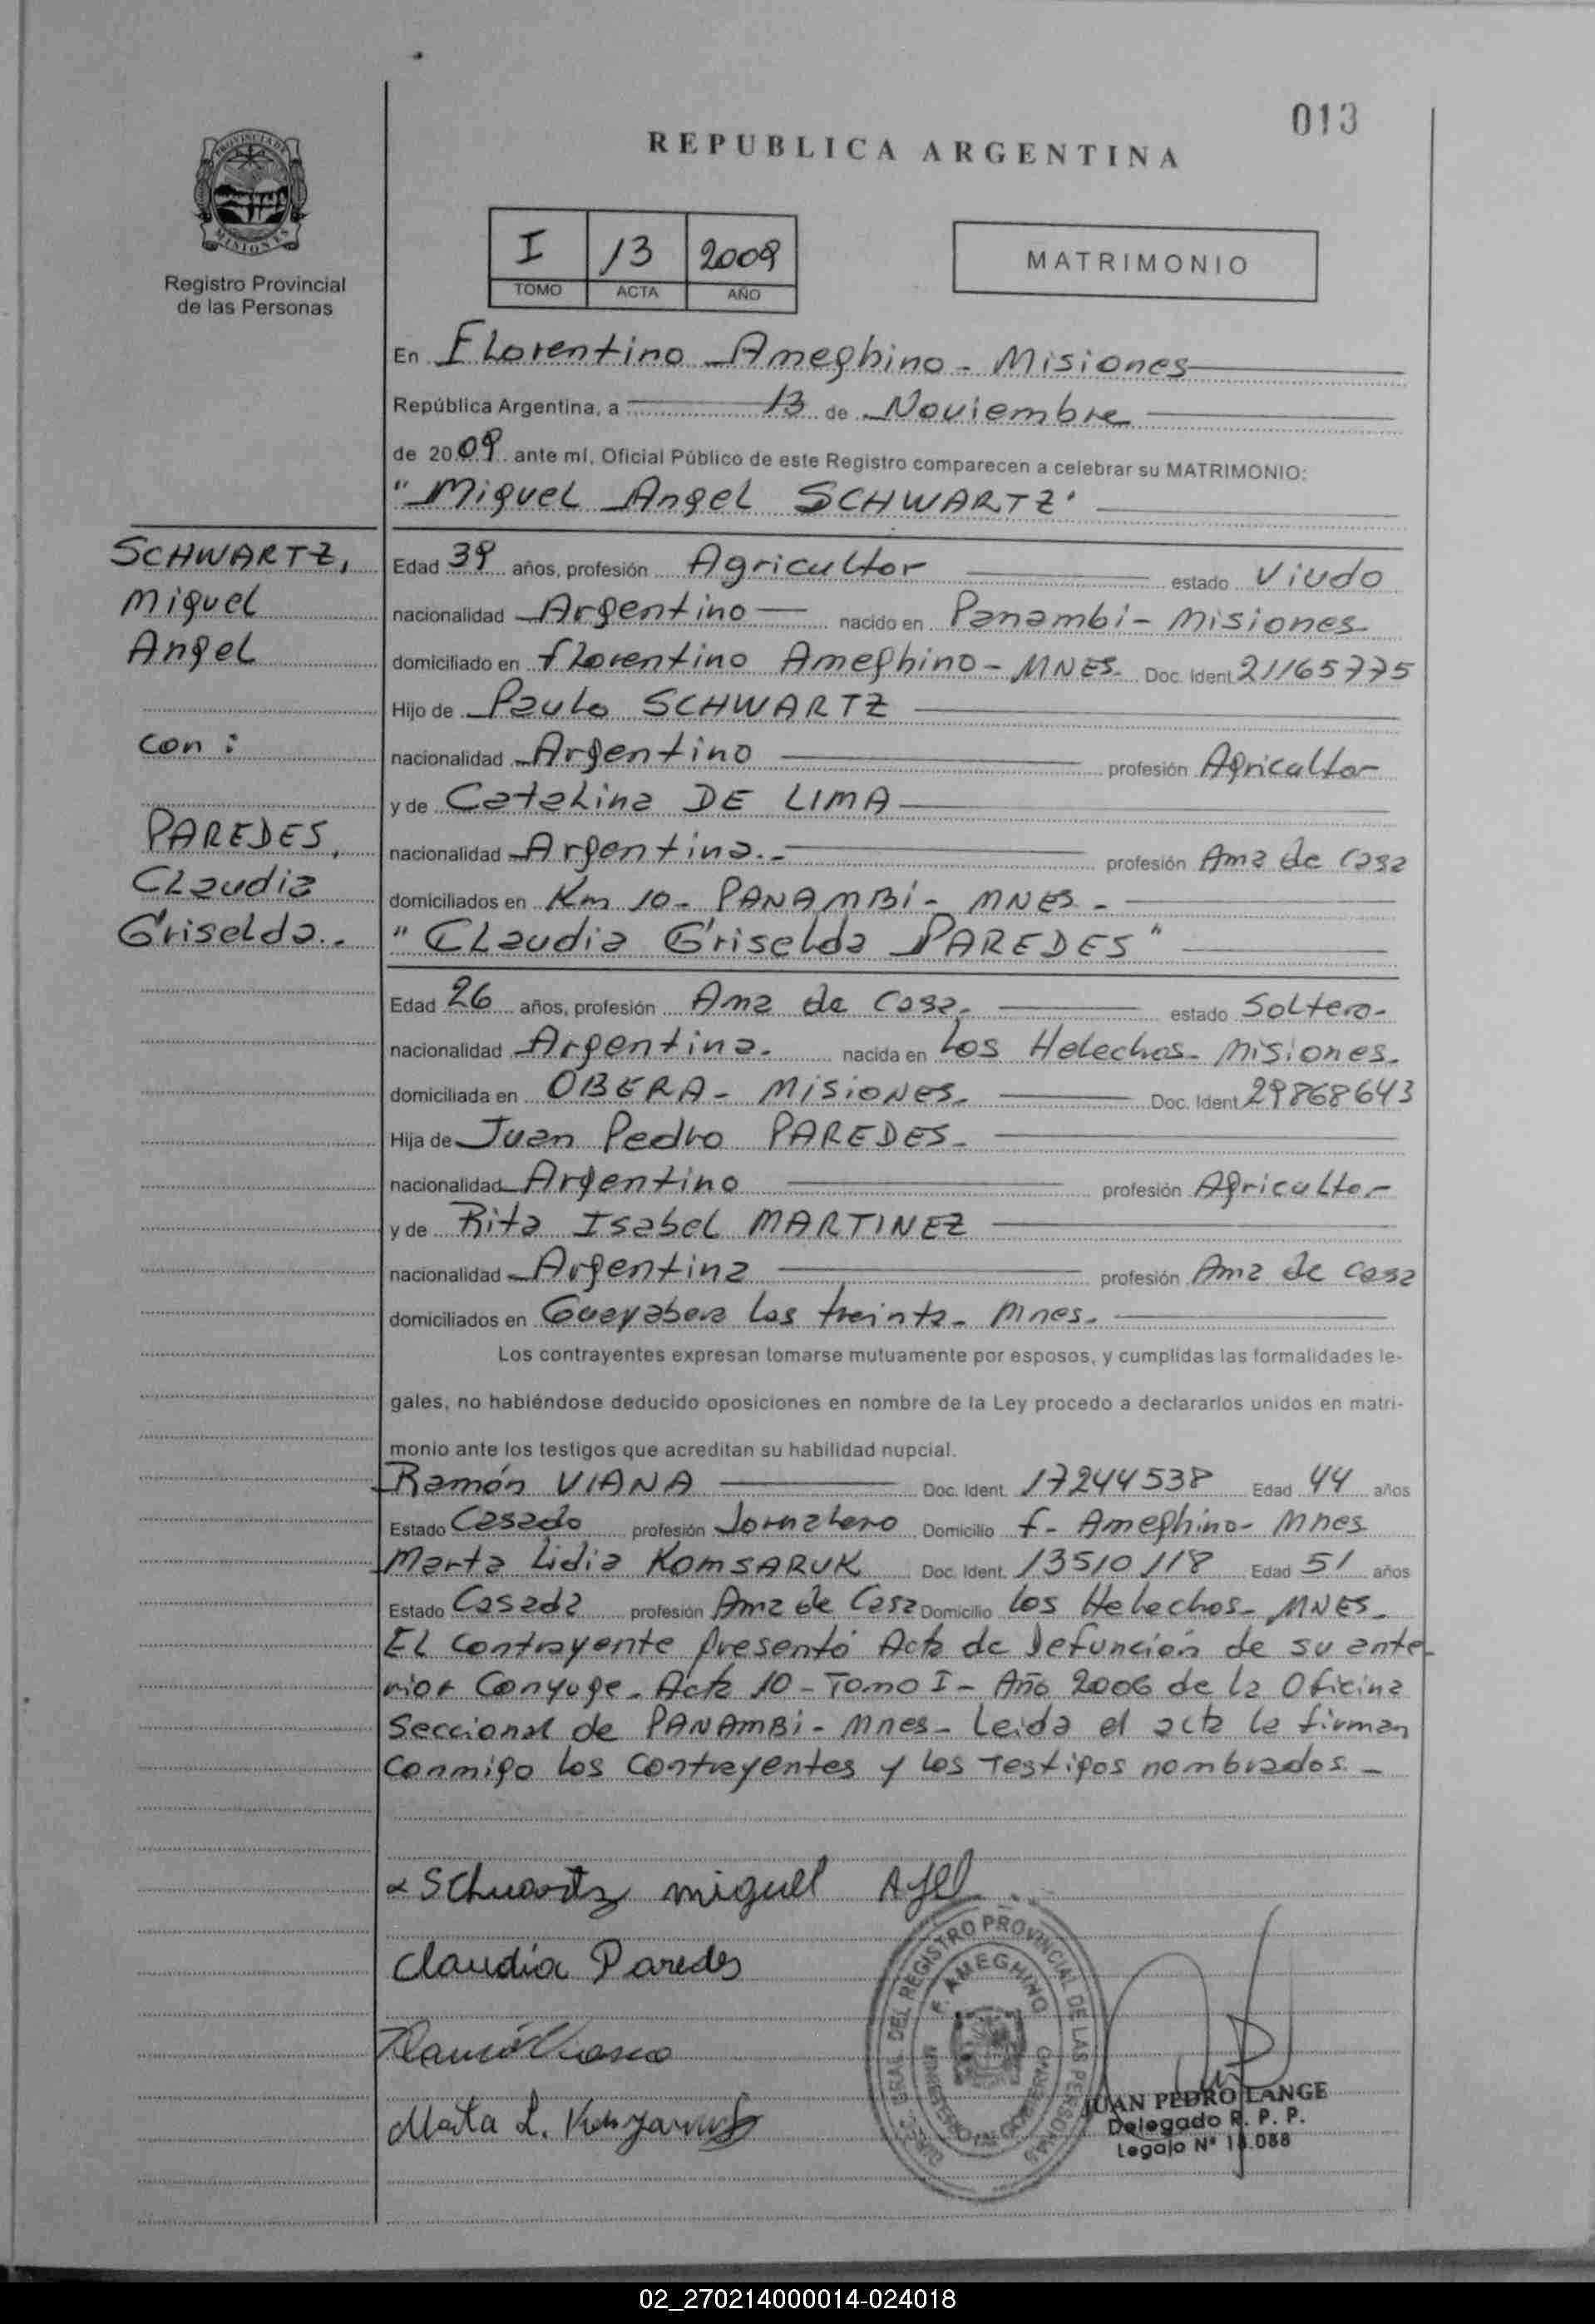 013
REPUBLICA ARGENTINA
PROVINCIA DE
MISIONES
Registro Provincial
de las Personas
I 13 2009
TOMO ACTA AÑO
MATRIMONIO
En Florentino Ameghino - Misiones
República Argentina, a 13 de Noviembre
de 2009 ante mí, Oficial Público de este Registro comparecen a celebrar su MATRIMONIO:
"Miguel Angel SCHWARTZ"
SCHWARTZ,
Miguel
Angel
con:
PAREDES,
Claudia
Griselda.-
Edad 39 años, profesión Agricultor estado Viudo
nacionalidad Argentino nacido en Panambi - Misiones
domiciliado en Florentino Ameghino - MNES. Doc. Ident. 21165775
Hijo de Paulo SCHWARTZ
nacionalidad Argentino profesión Agricultor
y de Catalina DE LIMA
nacionalidad Argentina.- profesión Ama de Casa
domiciliados en Km 10 - PANAMBÍ - MNES -
"Claudia Griselda PAREDES"
Edad 26 años, profesión Ama de Casa. estado Soltera-
nacionalidad Argentina. nacida en Los Helechos - Misiones.
domiciliada en OBERA - MISIONES. Doc. Ident. 29868643
Hija de Juan Pedro PAREDES -
nacionalidad Argentino profesión Agricultor
y de Rita Isabel MARTINEZ
nacionalidad Argentina profesión Ama de casa
domiciliados en Guayabera Los treinta - Mnes.
Los contrayentes expresan tomarse mutuamente por esposos, y cumplidas las formalidades le-
gales, no habiéndose deducido oposiciones en nombre de la Ley procedo a declararlos unidos en matri-
monio ante los testigos que acreditan su habilidad nupcial.
Ramón VIANA Doc. Ident. 17244538 Edad 44 años
Estado Casado profesión Jornalero Domicilio F - Ameghino - Mnes
Marta Lidia KOMSARUK Doc. Ident. 13510118 Edad 51 años
Estado Casada profesión Ama de Casa Domicilio Los Helechos - MNES -
El Contrayente presentó Acta de Defunción de su ante-
rior Conyuge - Acta 10 - Tomo I - Año 2006 de la Oficina
Seccional de PANAMBi - Mnes - Leida el acta la firman
Conmigo los Contrayentes y los Testigos nombrados. -
Schwartz miguel
Claudia Paredes
Marta L.
DIREC. GRAL. DEL REGISTRO PROVINCIAL DE LAS PERSONAS
F. AMEGHINO
MINISTERIO DE GOBIERNO
JUAN PEDRO LANGE
Delegado R. P. P.
Legajo Nº 18.088
02_270214000014-024018